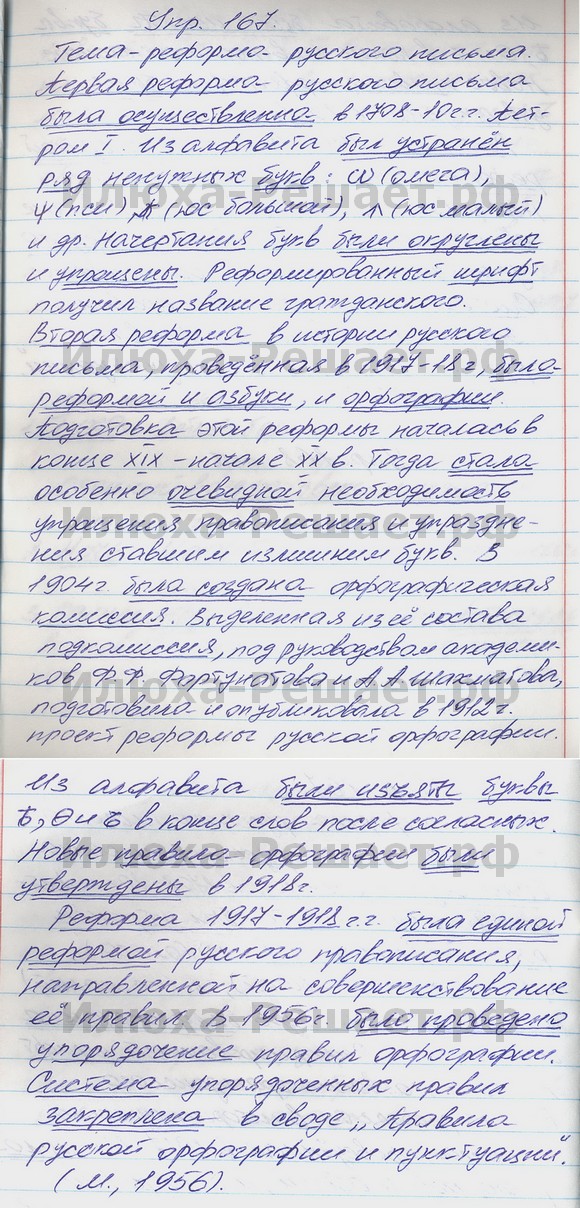 Упр. 167.
Тема - реформа русского письма.
Первая реформа русского письма
была осуществленна в 1708-10 г.г. Пет-
ром I. Из алфавита был устранён
ряд ненужных букв: ѡ (омега),
Ѱ (пси), Ѫ (юс большой), Ѧ (юс малый)
и др. Начертания букв были округлены
и упрощены. Реформированный шрифт
получил название гражданского.
Вторая реформа в истории русского
письма, проведённая в 1917-18 г, была
реформой и азбуки, и орфографии.
Подготовка этой реформы началась в
конце XIX - начале XX в. Тогда стала
особенно очевидной необходимость
упрощения правописания и упраздне-
ния ставшим излишним букв. В
1904 г. была создана орфографическая
комиссия. Выделенная из её состава
подкомиссия, под руководством академи-
ков Ф. Ф. Фортунатова и А. А. Шахматова,
подготовила и опубликовала в 1912 г.
проект реформы русской орфографии.
Из алфавита были изъяты буквы
ѣ, Ѳ и ъ в конце слов после согласных.
Новые правила орфографии были
утверждены в 1918 г.
Реформа 1917-1918 г.г. была единой
реформой русского правописания,
направленной на совершенствование
её правил. В 1956 г. было проведено
упорядочение правил орфографии.
Система упорядоченных правил
закреплена в своде „Правила
русской орфографии и пунктуации".
(М., 1956).
Илюха-Решает.рф
Илюха-Решает.рф
Илюха-Решает.рф
Илюха-Решает.рф
Илюха-Решает.рф
Илюха-Решает.рф
Илюха-Решает.рф